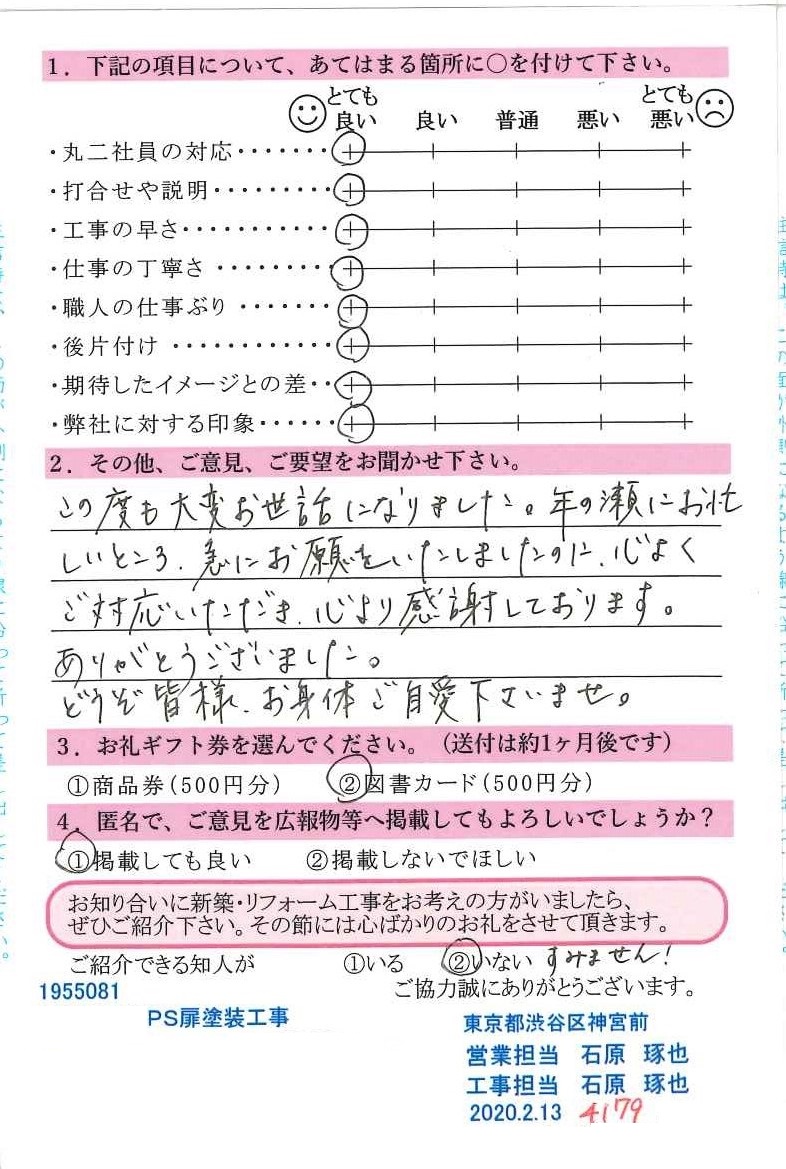 1. 下記の項目について、あてはまる箇所に○を付けて下さい。
とても良い 良い 普通 悪い とても悪い
・丸二社員の対応・・・・・・・
・打合せや説明・・・・・・・・・
・工事の早さ・・・・・・・・・・・
・仕事の丁寧さ ・・・・・・・・・
・職人の仕事ぶり ・・・・・・・
・後片付け ・・・・・・・・・・・・
・期待したイメージとの差・・
・弊社に対する印象・・・・・・
2. その他、ご意見、ご要望をお聞かせ下さい。
この度も大変お世話になりました。年の瀬にお忙
しいところ、急にお願をいたしましたのに、心よく
ご対応いただき、心より感謝しております。
ありがとうございました。
どうぞ皆様、お身体ご自愛下さいませ。
3. お礼ギフト券を選んでください。(送付は約1ヶ月後です)
①商品券(500円分) ②図書カード(500円分)
4. 匿名で、ご意見を広報物等へ掲載してもよろしいでしょうか?
①掲載しても良い ②掲載しないでほしい
お知り合いに新築・リフォーム工事をお考えの方がいましたら、
ぜひご紹介下さい。その節には心ばかりのお礼をさせて頂きます。
ご紹介できる知人が ①いる ②いない すみません!
ご協力誠にありがとうございます。
1955081
PS扉塗装工事
東京都渋谷区神宮前
営業担当 石原 琢也
工事担当 石原 琢也
2020.2.13 4179